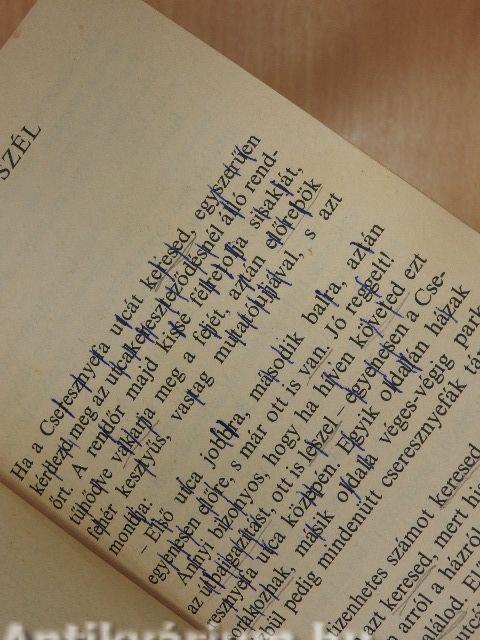 SZÉL
Ha a Cseresznyefa utcát keresed, egyszerűen
kérdezd meg az utcakereszteződésnél álló rend-
őrt. A rendőr majd kissé félretolja sisakját,
tűnődve vakarja meg a fejét, aztán előrebök
fehér kesztyűs, vastag mutatóujjával, s azt
mondja:
– Első utca jobbra, második balra, aztán
egyenesen előre, s már ott is van. Jó reggelt!
Annyi bizonyos, hogy ha híven követed ezt
az útbaigazítást, ott is leszel – egyenesen a Cse-
resznyefa utca közepén. Egyik oldalán házak
másik oldala véges-végig park
pedig mindenütt cseresznyefák
számot keresed
azt keresed, mert
arról a házról
Antikvárium.hu